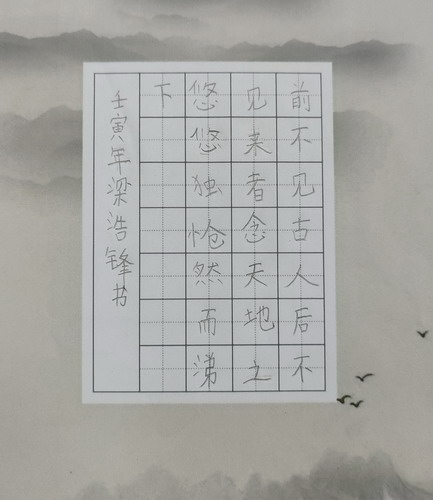 前不见古人后不
见来者念天地之
悠悠独怆然而涕
下
壬寅年梁浩锋书